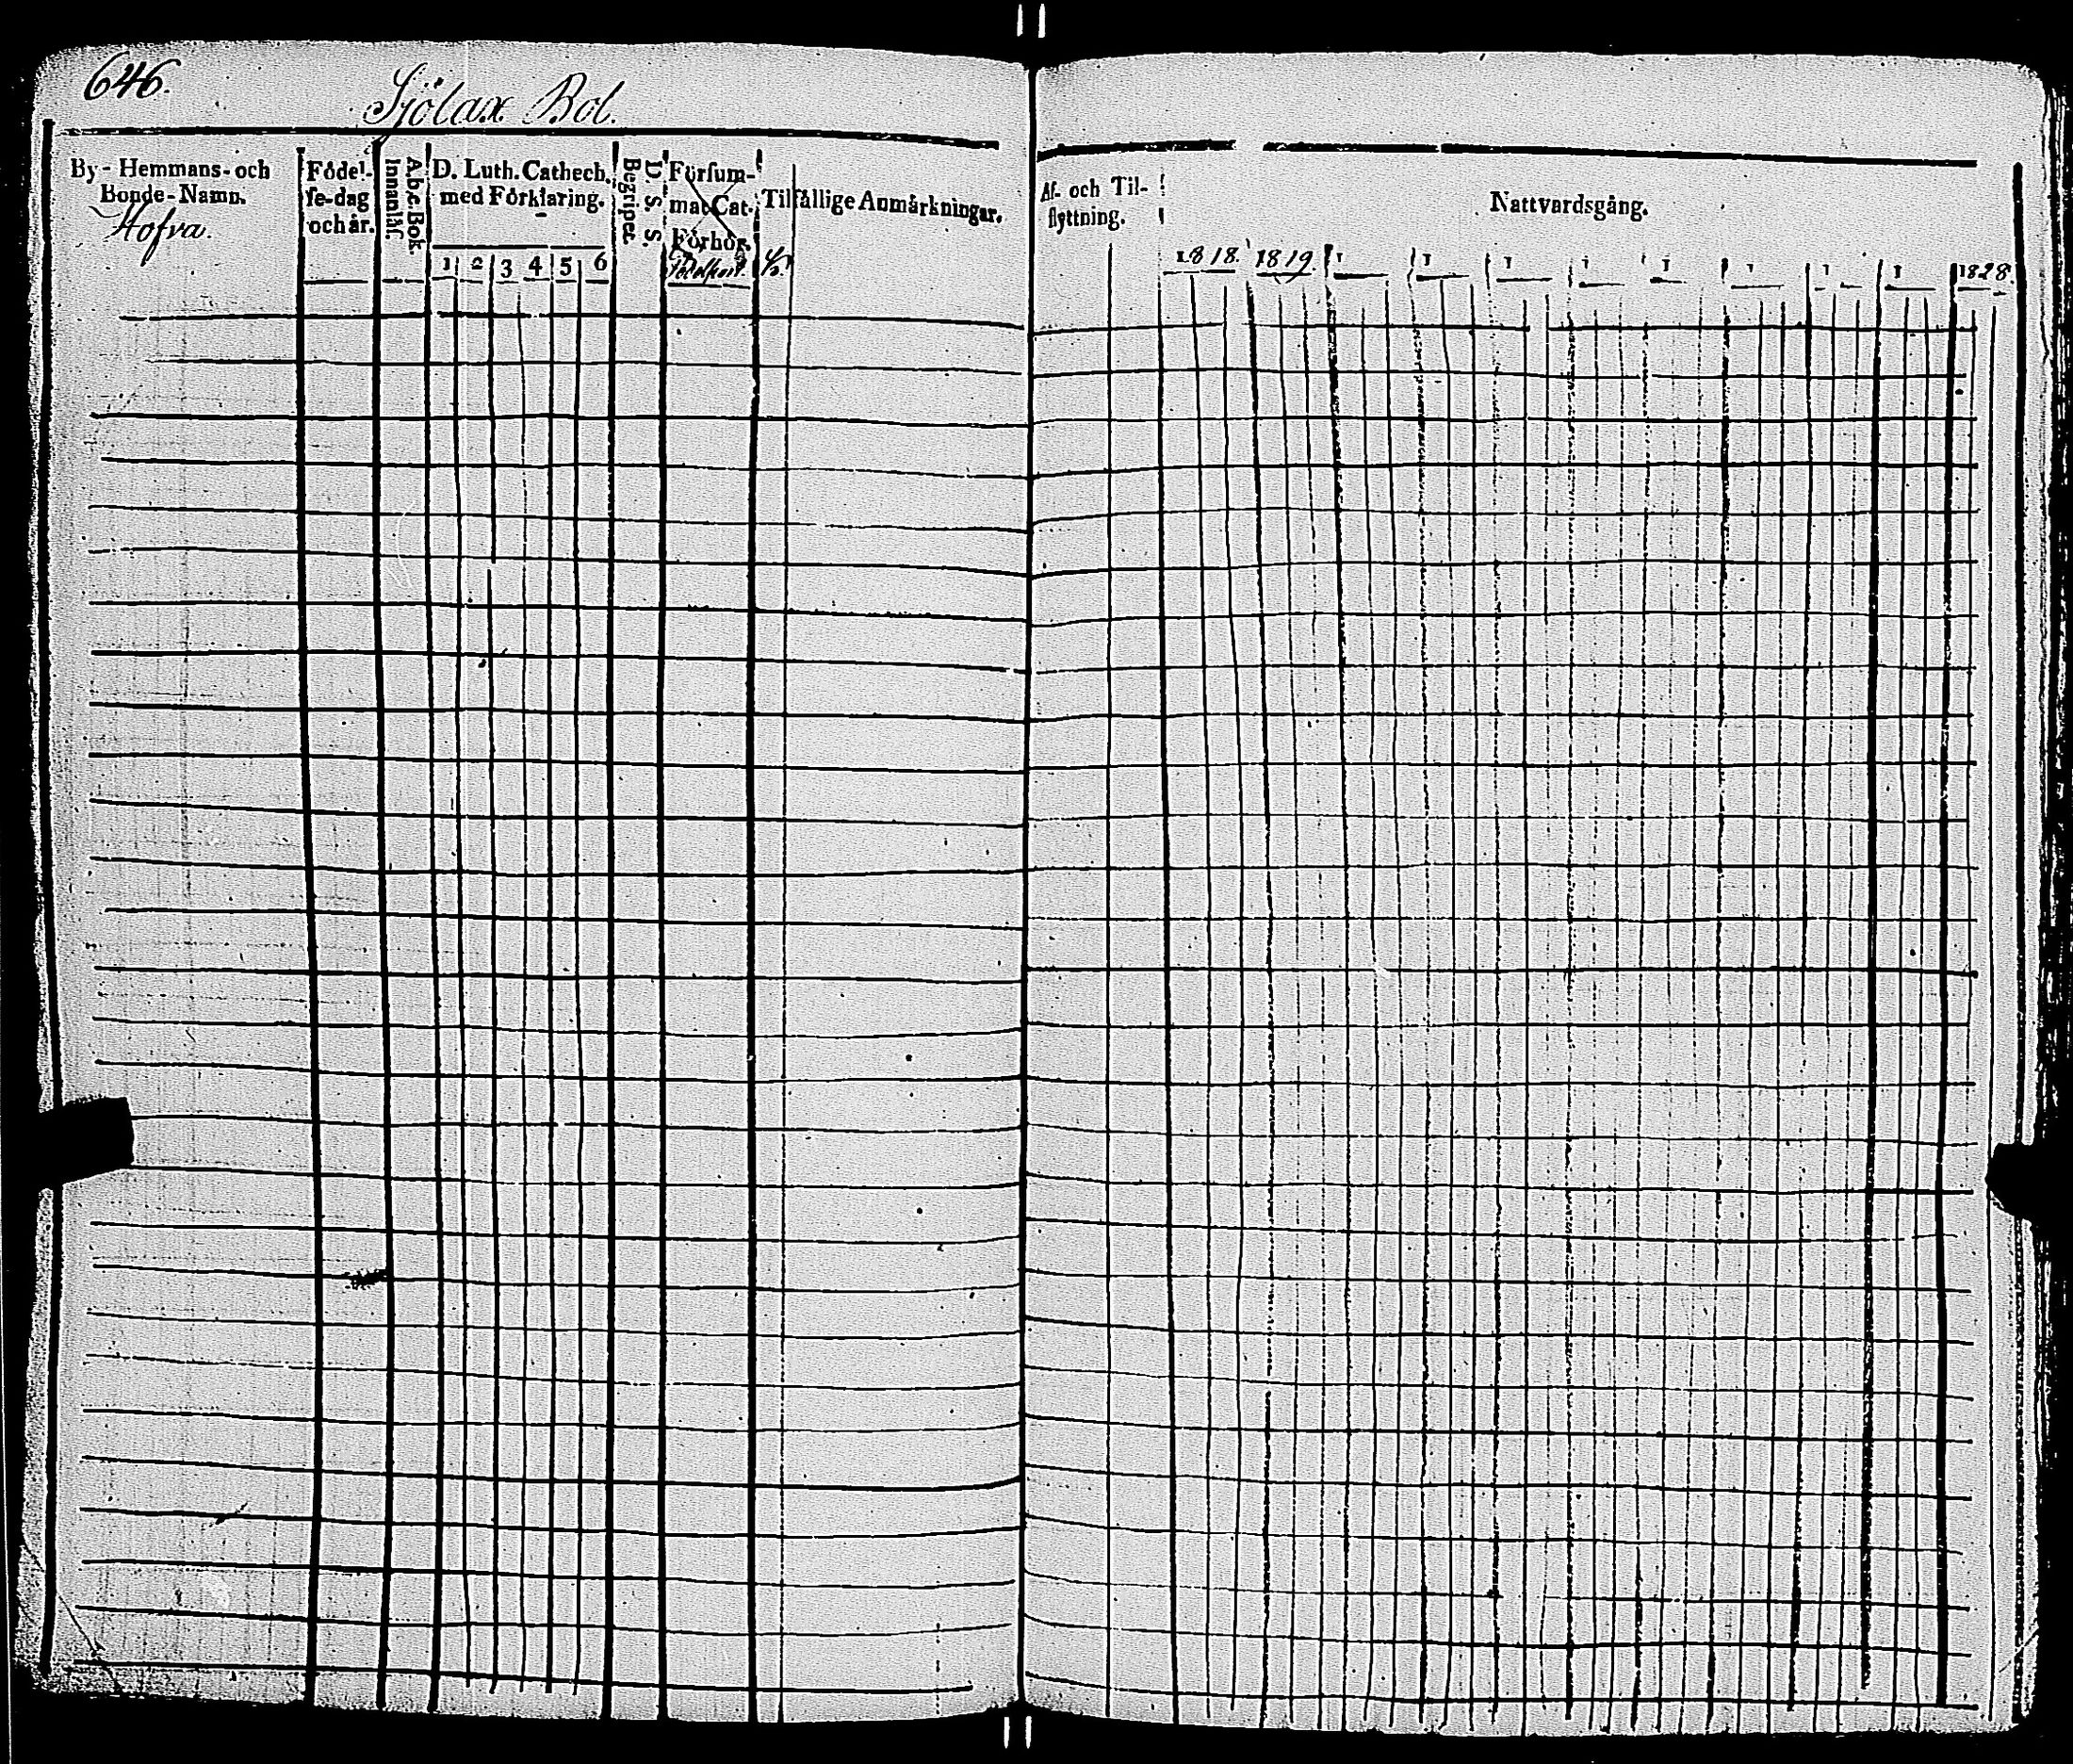 646.
Sjölax Bol.
By - Hemmans - och
Bonde - Namn.
Hofra.
Födel-
se-dag
och år.
A.b.c. Bok
Innanläs.
D. Luth. Cathech.
med Förklaring.
1 2 3 4 5 6
D. S. S.
Begripet.
Försum-
mat Cat.
Förhör.
Tilfällige Anmärkningar.
Af- och Til-
flyttning.
Nattvardsgång.
1818. 1819. 1 1 1 1 1 1 1 1 1828